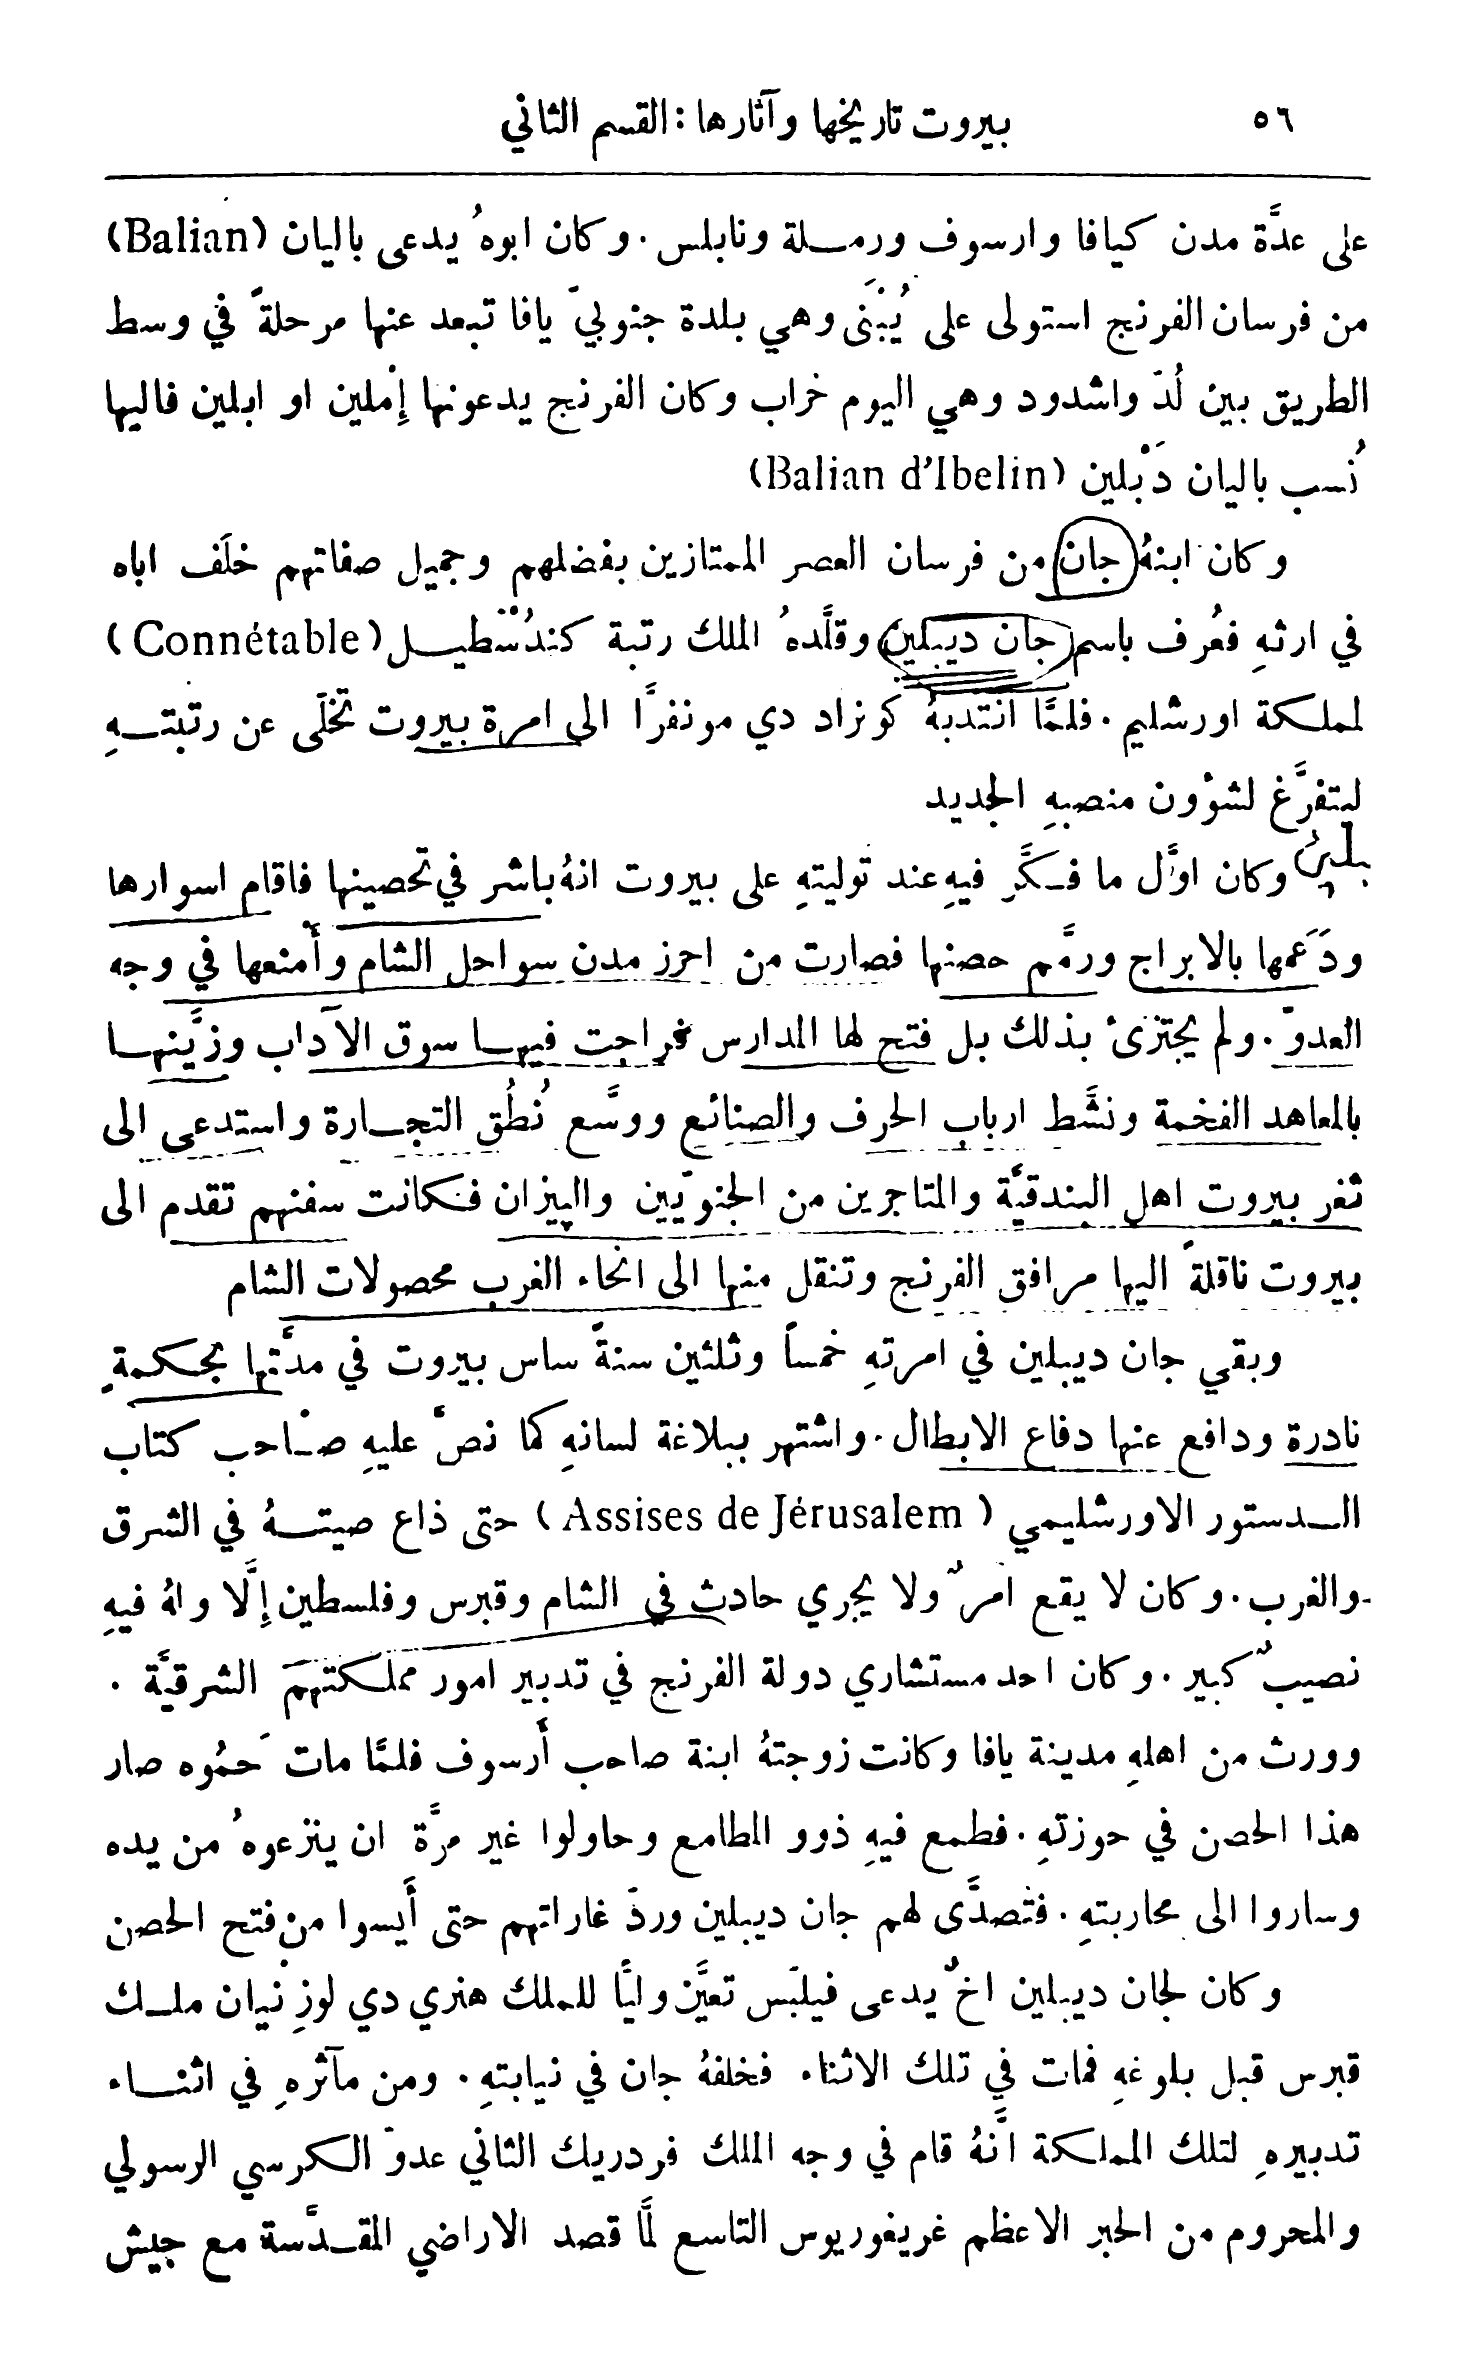 ٥٦ بيروت تاريخها وآثارها : القسم الثاني
على عدَّة مدن كيافا وارسوف ورمــلة ونابلس . وكان ابوهُ يدعى باليان (Balian)
من فرسان الفرنج استولى على يُبْنَى وهي بلدة جنوبيّ يافا تبعد عنها مرحلةً في وسط
الطريق بين لُدّ واشدود وهي اليوم خراب وكان الفرنج يدعونها إِمْلين او ابلين فاليها
نُسب باليان دَبْلين (Balian d'Ibelin)
وكان ابنهُ جان من فرسان العصر الممتازين بفضلهم وجميل صفاتهم خلَف اباه
في ارثهِ فعُرف باسم جان ديبلين وقلَّدهُ الملك رتبة كندُسْطيــل (Connétable)
لمملكة اورشليم . فلمَّا انتدبهُ كونراد دي مونفرَّا الى امرة بيروت تخلَّى عن رتبتــهِ
ليتفرَّغ لشؤون منصبهِ الجديد
وكان اوَّل ما فــكَّر فيهِ عند توليتهِ على بيروت انهُ باشر في تحصينها فاقام اسوارها
ودَعَمها بالابراج ورمَّم حصنها فصارت من احرز مدن سواحل الشام وأَمنعها في وجه
العدوّ . ولم يجتزئ بذلك بل فتح لها المدارس فراجت فيهــا سوق الآداب وزيَّنهــا
بالمعاهد الفخمة ونشَّط ارباب الحرف والصنائع ووسَّع نُطُق التجــارة واستدعى الى
ثغر بيروت اهل البندقيَّة والمتاجرين من الجنويّين والپيزان فــكانت سفنهم تقدم الى
بيروت ناقلةً اليها مرافق الفرنج وتنقل منها الى انحاء الغرب محصولات الشام
وبقي جان ديبلين في امرتهِ خمساً وثلثين سنةً ساس بيروت في مدَّتها بحــكمةٍ
نادرة ودافع عنها دفاع الابطال . واشتهر ببلاغة لسانهِ كما نصّ عليهِ صــاحب كتاب
الــدستور الاورشليمي ( Assises de Jérusalem ) حتى ذاع صيتــهُ في الشرق
والغرب . وكان لا يقع امرٌ ولا يجري حادث في الشام وقبرس وفلسطين إِلَّا ولهُ فيهِ
نصيبٌ كبير . وكان احد مستشاري دولة الفرنج في تدبير امور مملــكتهم الشرقيَّة .
وورث من اهلهِ مدينة يافا وكانت زوجتهُ ابنة صاحب أَرسوف فلمَّا مات حَمُوه صار
هذا الحصن في حوزتهِ . فطمع فيهِ ذوو المطامع وحاولوا غير مرَّة ان ينزعوهُ من يده
وساروا الى محاربتهِ . فتصدَّى لهم جان ديبلين وردّ غاراتهم حتى أَيسوا من فتح الحصن
وكان لجان ديبلين اخٌ يدعى فيلبّس تعيَّن وليًّا للملك هنري دي لوزِنيان ملــك
قبرس قبل بلوغهِ فمات في تلك الاثناء فخلفهُ جان في نيابتهِ . ومن مآثرهِ في اثنــاء
تدبيرهِ لتلك المملــكة انَّهُ قام في وجه الملك فردريك الثاني عدوّ الــكرسي الرسولي
والمحروم من الحبر الاعظم غريغوريوس التاسع لمَّا قصد الاراضي المقــدَّسة مع جيش